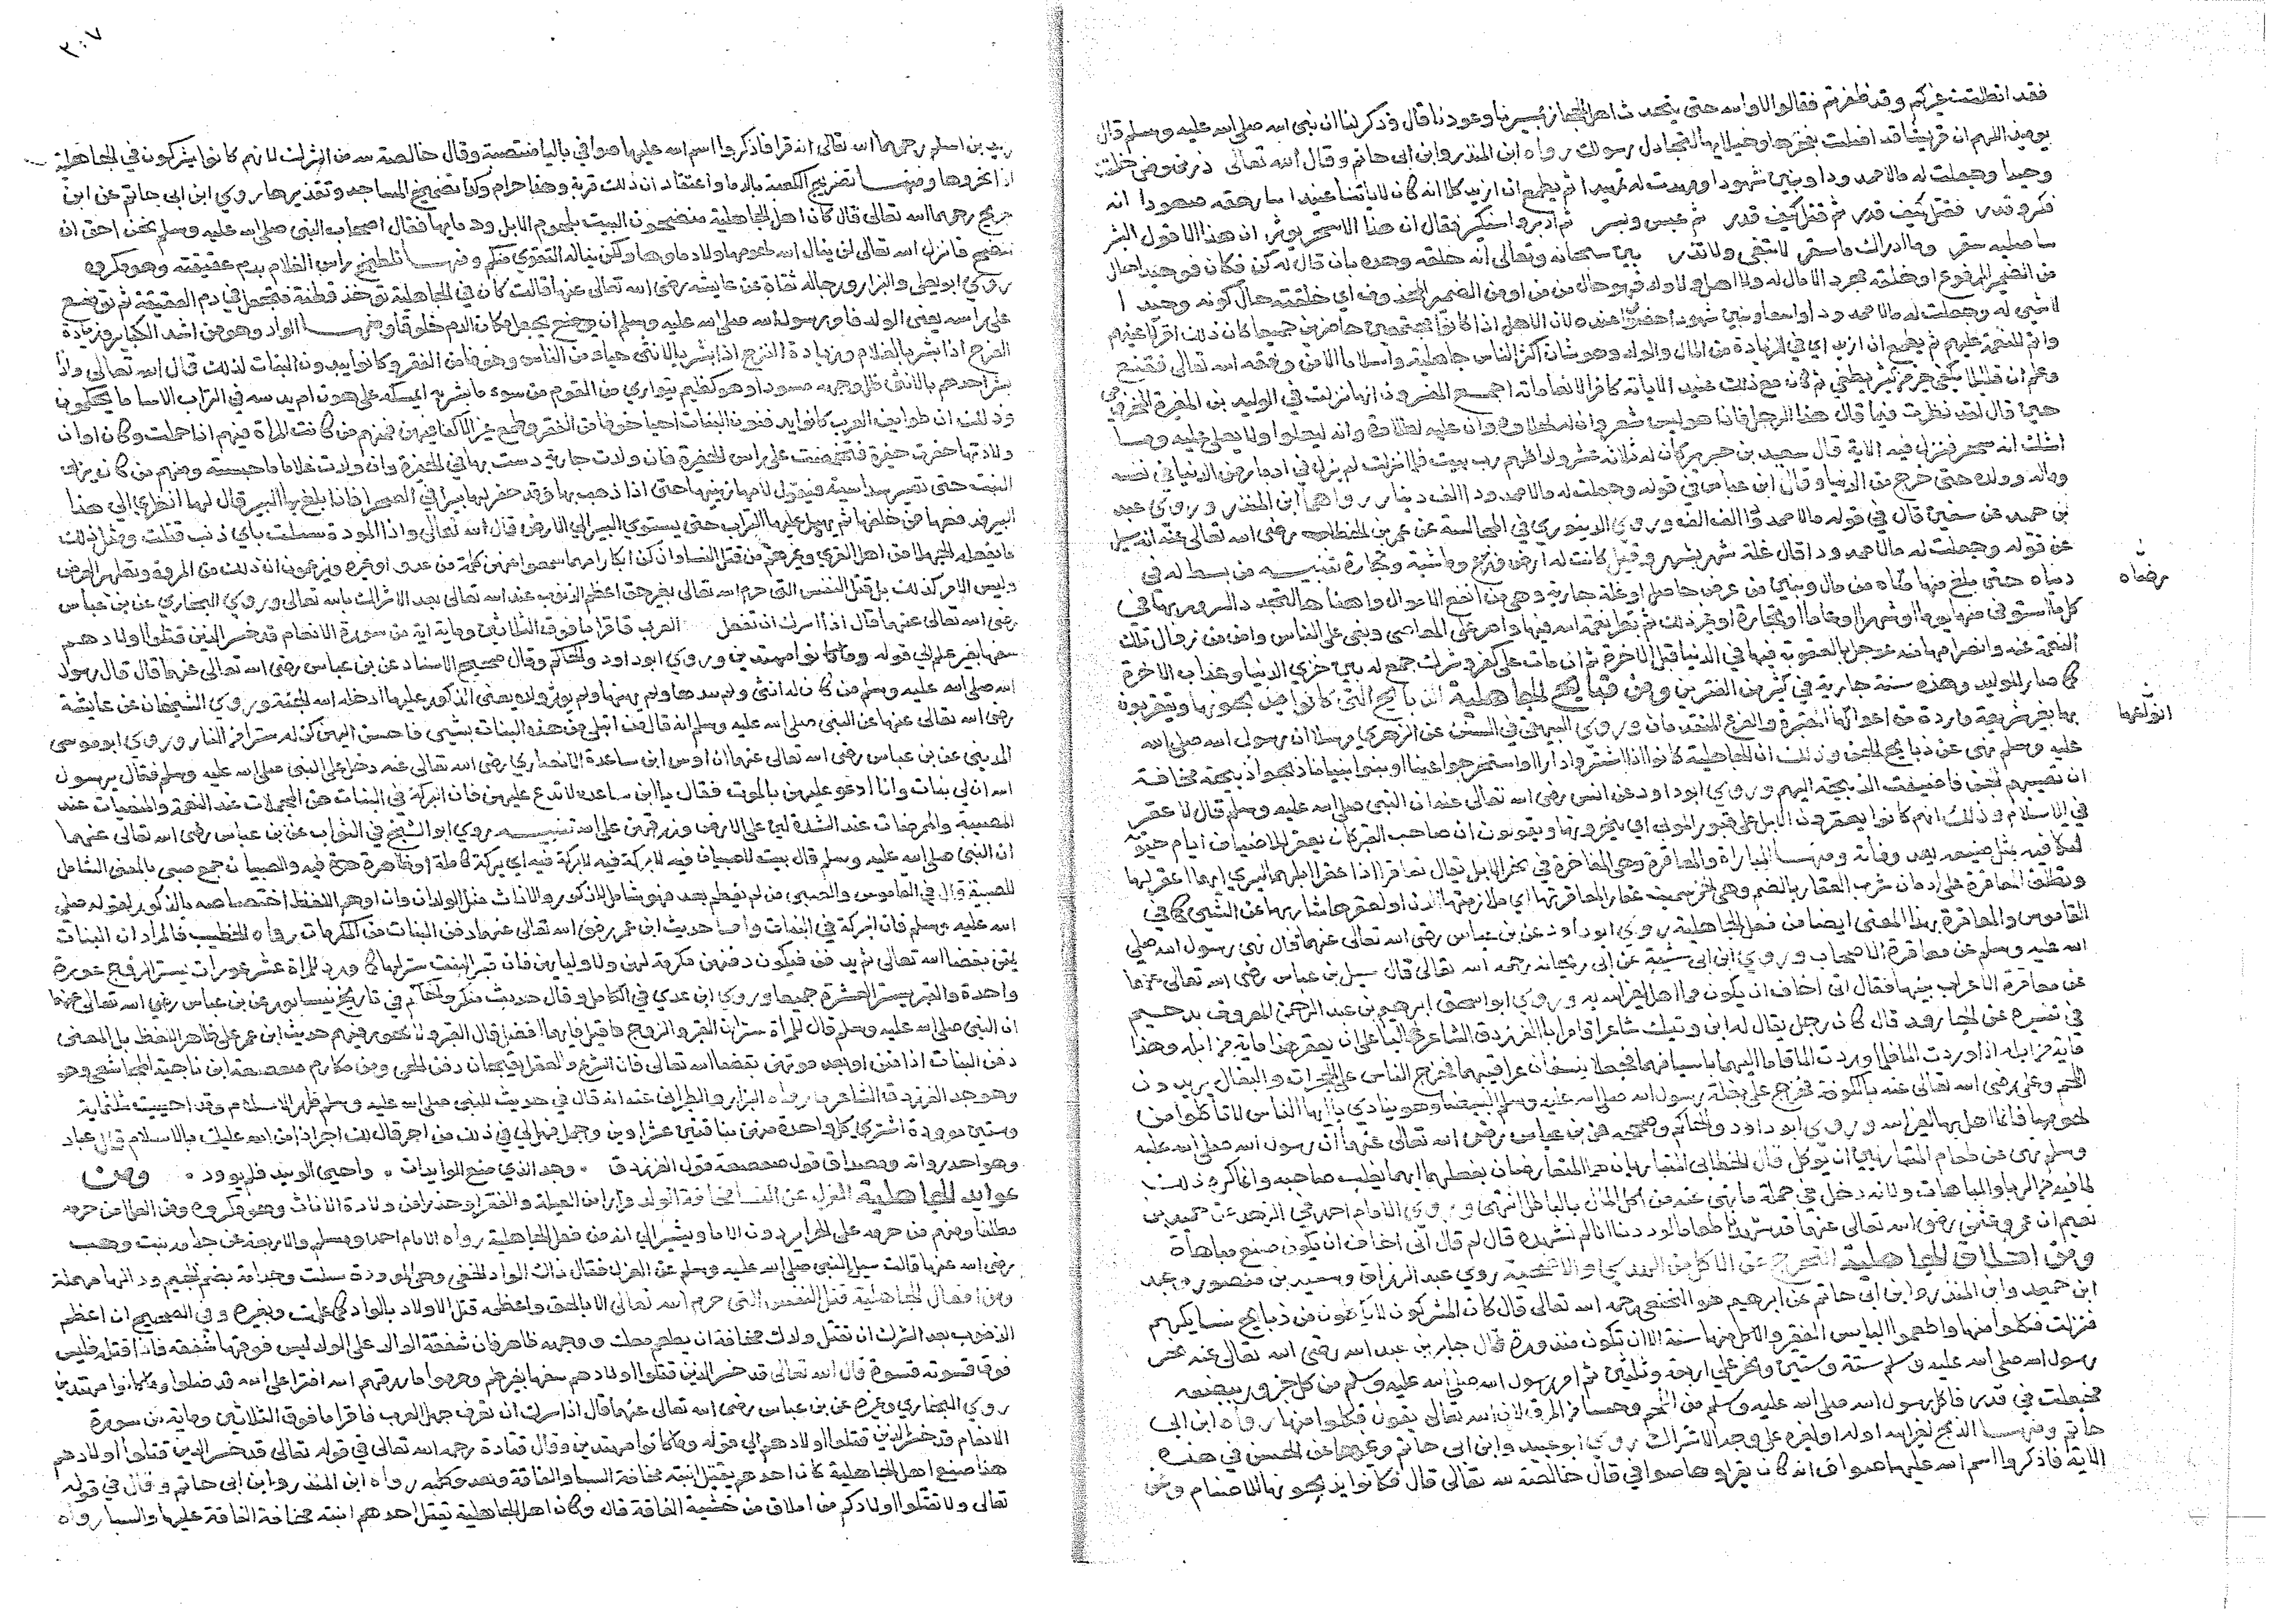 فقد انطلقت عيركم وقد ظفرتم فقالوا لا والله حتى يتحدث اهل الحجاز بمسيرنا وعودنا قال وذكر لنا ان نبي الله صلى الله عليه وسلم قال
يومئذ اللهم ان قريشا قد اقبلت بفخرها وخيلائها لتجادل رسولك رواه ابن المنذر وابن ابي حاتم وقال الله تعالى ذرني ومن خلقت
وحيدا وجعلت له مالا ممدودا وبنين شهودا ومهدت له تمهيدا ثم يطمع ان ازيد كلا انه كان لاياتنا عنيدا سارهقه صعودا انه
فكر وقدر فقتل كيف قدر ثم قتل كيف قدر ثم عبس وبسر ثم ادبر واستكبر فقال ان هذا الا سحر يوثر ان هذا الا قول البشر
ساصليه سقر وما ادراك ما سقر لا تبقي ولا تذر بين سبحانه وتعالى انه خلقه وحده بان قال له كن فكان فوحيدا حال
من الضمير المرفوع او خلقته مجردا لا مال له ولا اهل ولا ولد فهو حال من من او من الضمير المحذوف اي خلقته حال كونه وحيدا
لا شي له وجعلت له مالا ممدودا واسعا وبنين شهودا حضورا عنده لان الاهل اذا كانوا مجتمعين حاضرين جميعا كان ذلك اقر لاعينهم
واتم للنعمة عليهم ثم يطمع ان ازيد اي في الزيادة من المال والولد وهو شان اكثر الناس جاهلية واسلاما الا من وفقه الله تعالى فقنع
وعلم ان قليلا يكفي خير من كثير يطغي ثم كان مع ذلك عنيدا لاياته كافرا لانعاماته اجمع المفسرون انها نزلت في الوليد بن المغيرة المخزومي
حين قال لقد نظرت فيما قال هذا الرجل فاذا هو ليس بشعر وان له لحلاوة وان عليه لطلاوة وانه ليعلوا ولا يعلى عليه وما
اشك انه سحر فنزل فيه الاية قال سعيد بن جبير كان له ثلاثة عشر ولدا كلهم رب بيت فلما نزلت لم يزل في ادبار من الدنيا في نفسه
وماله وولده حتى خرج من الدنيا وقال ابن عباس في قوله وجعلت له مالا ممدودا الف دينار رواهما ابن المنذر وروى عبد
بن حميد عن سفين قال في قوله مالا ممدودا الف الف وروى الدينوري في المجالسة عن عمر بن الخطاب رضي الله تعالى عنه انه سيل
عن قوله وجعلت له مالا ممدودا قال غلة شهر بشهر وقيل كانت له ارض وزرع وماشية وتجارة تنبيه من بسط له في
دنياه حتى بلغ منها مناه من مال وبنين من عرض حاصل او غلة جارية وهي من انفع الاموال واهناها لتجدد السرور بها في
مرضاه
كل ما استوفي منها يوما او شهرا او عاما او تجارة او غير ذلك ثم كفر بنعمة الله فيها واصر على المعاصي وبغى على الناس وامن من زوال تلك
النعمة عنه وانصرامها منه عوجل بالعقوبة فيها في الدنيا قبل الاخرة ثم ان مات على كفر وشرك جمع له بين خزي الدنيا وعذاب الاخرة
كما صار للوليد وهذه سنة جارية في كثير من المغترين ومن قبايح الجاهلية الذبايح التي كانوا يذبحونها ويتقربون
انواعها
عليه وسلم نهى عن ذبايح الجن وذلك ان الجاهلية كانوا اذا اشتروا دارا او استخرجوا عينا او بنوا بنيانا ذبحوا ذبيحة مخافة
ان تصيبهم الجن فاضيفت الذبيحة اليهم وروى ابو داود عن انس رضي الله تعالى عنه ان النبي صلى الله عليه وسلم قال لا عقر
في الاسلام وذلك انهم كانوا يعقرون الابل على قبور الموتى اي ينحرونها ويقولون ان صاحب القبر كان يعقر للاضياف ايام حيوته
القاموس والمعاقرة بهذا المعنى ايضا من فعل الجاهلية روى ابو داود عن بن عباس رضي الله تعالى عنهما قال نهى رسول الله صلى
الله عليه وسلم عن معاقرة الاعراب وروى ابن ابي شيبة عن ابي ريحانة رحمه الله تعالى قال سيل بن عباس رضي الله تعالى عنهما
عن معاقرة الاعراب بينها فقال اني اخاف ان يكون مما اهل لغير الله به وروى ابو اسحق ابرهيم بن عبد الرحمن المعروف بدحيم
في تفسيره عن الجارود قال كان رجل يقال له ابن وثيل شاعرا قام ابا الفرزدق الشاعر غالبا على ان يعقر هذا ماية من ابله وهذا
ماية من ابله اذا وردت الماء فلما وردت الماء قاما اليهما باسيافهما فجعلا ينسفان عراقيبهما فخرج الناس على الحمرات والبغال يريدون
اللحم وعلي رضي الله تعالى عنه بالكوفة فخرج على بغلة رسول الله صلى الله عليه وسلم البيضا وهو ينادي يا ايها الناس لا تاكلوا من
لحومها فانما اهل بها لغير الله وروى ابو داود والحاكم وصححه عن بن عباس رضي الله تعالى عنهما ان رسول الله صلى الله عليه
وسلم نهى عن طعام المتباريين ان يوكل قال الخطابي المتباريان هما المتعارضان بفعلهما ايهما يغلب صاحبه وانما كره ذلك
لما فيه من الريا والمباهات ولانه دخل في جملة ما نهي عنه من اكل المال بالباطل انتهى وروى الامام احمد في الزهد عن حميد بن
نعيم ان عمر وعثمن رضي الله تعالى عنهما قال لم قال اني اخاف ان يكون صنع مباهاة
ومن اخلاق الجاهلية التحرج عن الاكل من الهدي والاضحية روى عبد الرزاق وسعيد بن منصور وعبد
ابن حميد وابن المنذر وابن ابي حاتم عن ابرهيم هو النخعي رحمه الله تعالى قال كان المشركون لا ياكلون من ذبايح نسايكهم
فنزلت فكلوا منها واطعموا البايس الفقير والاكل منها سنة الا ان تكون منذورة قال جابر بن عبد الله رضي الله تعالى عنه نحر
رسول الله صلى الله عليه وسلم ستة وستين ونحر علي اربعة وثلثين ثم امر رسول الله صلى الله عليه وسلم من كل جزور ببضعه
فجعلت في قدر فاكل رسول الله صلى الله عليه وسلم من اللحم وحسا من المرق لان الله تعالى يقول فكلوا منها رواه ابن ابي
حاتم ومنها الذبح لغير الله اوله ولغيره على وجه الاشراك روى ابو عبيد وابن ابي حاتم وغيرهما عن الحسن في هذه
الاية فاذكروا اسم الله عليها صواف انه كان يقراوها صوافي قال خالصة لله تعالى قال فكانوا يذبحونها للاصنام وعن
٣٠٧
زيد بن اسلم رحمهما الله تعالى انه قرا فاذكروا اسم الله عليها صوافي بالياء منتصبة وقال خالصة لله من الشرك لانهم كانوا يشركون في الجاهلية
اذا نحروها ومنها تضريج الكعبة بالدما واعتقاد ان ذلك قربة وهذا حرام وكذا تضميخ المساجد وتقذيرها روى ابن ابي حاتم عن ابن
جريج رحمهما الله تعالى قال كان اهل الجاهلية ينضحون البيت بلحوم الابل ودمايها فقال اصحاب النبي صلى الله عليه وسلم نحن احق ان
ننضح فانزل الله تعالى لن ينال الله لحومها ولا دماوها ولكن يناله التقوى منكم ومنها تلطيخ راس الغلام بدم عقيقته وهو مكروه
روى ابو يعلى والبزار ورجاله ثقات عن عايشة رضي الله تعالى عنها قالت كان في الجاهلية توخذ قطنة فتجعل في دم العقيقة ثم توضع
على راسه يعني الولد فامر رسول الله صلى الله عليه وسلم ان يجعل مكان الدم خلوقا ومنها الواد وهو من اشد الكباير وزيادة
الفرح اذا بشر بالغلام وزيادة الترح اذا بشر بالانثى حياء من الناس وخوفا من الفقر وكانوا يئدون البنات لذلك قال الله تعالى واذا
بشر احدهم بالانثى ظل وجهه مسودا وهو كظيم يتوارى من القوم من سوء ما بشر به ايمسكه على هون ام يدسه في التراب الا سا ما يحكمون
وذلك ان طوايف العرب كانوا يدفنون البنات احيا خوفا من الفقر وطمع غير الاكفا فيهن فمنهم من كانت المراة فيهم اذا حملت وكان اوان
ولادتها حفرت حفرة فتمخضت على راس الحفرة فان ولدت جارية دست بها في الحفرة وان ولدت غلاما حبسته ومنهم من كان يترك
البنت حتى تصير سداسية فيقول لامها زينيها حتى اذا ذهب بها وقد حفر لها بيرا في الصحرا فاذا بلغ بها البير قال لها انظري الى هذا
البير فيدفعها من خلفها ثم يهيل عليها التراب حتى يستوي البير الى الارض قال الله تعالى واذا الموودة سيلت باي ذنب قتلت ومثل ذلك
ما يفعله الجهلا من اهل القرى وغيرهم من قتل النسا وان كن ابكارا مهما سمعوا عنهن كلمة من عدو او غيره ويزعمون ان ذلك من المروة وتطهير العرض
وليس الامر كذلك بل قتل النفس التي حرم الله تعالى بغير حق اعظم الذنوب عند الله تعالى بعد الاشراك بالله تعالى وروى البخاري عن بن عباس
رضي الله تعالى عنهما قال اذا سرك ان تعلم العرب فاقرا ما فوق الثلاثين وماية اية من سورة الانعام قد خسر الذين قتلوا اولادهم
سفها بغير علم الى قوله وما كانوا مهتدين وروى ابو داود والحاكم وقال صحيح الاسناد عن بن عباس رضي الله تعالى عنهما قال قال رسول
الله صلى الله عليه وسلم من كان له انثى ولم يئدها ولم يهنها ولم يوثر ولده يعني الذكور عليها ادخله الله الجنة وروى الشيخان عن عايشة
رضي الله تعالى عنها عن النبي صلى الله عليه وسلم انه قال من ابتلي من هذه البنات بشيء فاحسن اليهن كن له سترا من النار وروى ابو موسى
المديني عن بن عباس رضي الله تعالى عنهما ان اوس ابن ساعدة الانصاري رضي الله تعالى عنه دخل على النبي صلى الله عليه وسلم فقال يا رسول
الله ان لي بنات وانا ادعو عليهن بالموت فقال يا ابن ساعدة لا تدع عليهن فان البركة في البنات هن المجملات عند النعمة والمنعيات عند
المصيبة والممرضات عند الشدة ثقلهن على الارض ورزقهن على الله تنبيه روى ابو الشيخ في الثواب عن بن عباس رضي الله تعالى عنهما
ان النبي صلى الله عليه وسلم قال بيت لا صبيان فيه لا بركة فيه اي بركة كاملة او ظاهرة والصبيان جمع صبي بالمعنى الشامل
للصبية قال في القاموس والصبي من لم يفطم بعد فهو شامل للذكور والاناث مثل الولدان وان اوهم اللفظ اختصاصه بالذكور لقوله صلى
الله عليه وسلم فان البركة في البنات واما حديث ابن عمر رضي الله تعالى عنهما دفن البنات من المكرمات رواه الخطيب فالمراد ان البنات
واحدة والقبر يستر العشرة جميعا وروى ابن عدي في الكامل وقال حديث منكر والحاكم في تاريخ نيسابور عن بن عباس رضي الله تعالى عنهما
ان النبي صلى الله عليه وسلم قال للمراة ستران القبر والزوج قيل فايهما افضل قال القبر
دفن البنات اذا متن ومن مكارم صعصعة ابن ناجية المجاشعي وهو
وهو جد الفرزدق الشاعر ما رواه البزار والطبراني عنه انه قال في حديث للنبي صلى الله عليه وسلم ظهر الاسلام وقد احييت ثلثماية
وستين موودة اشتري كل واحدة منهن بناقتين عشراوين وجمل فهل لي في ذلك من اجر قال لك اجره اذ من الله عليك بالاسلام قال عباد
وهو احد رواته ومصداق قول صعصعة قول الفرزدق وجدي الذي منع الوايدات واحيى الوييد فلم يوود ومن
عوايد الجاهلية العزل عن النسا مخافة الولد وفرارا من العيلة والفقر او حذرا من ولادة الاناث وهو مكروه ومن العلما من حرمه
مطلقا ومنهم من حرمه على الحراير دون الاما ويشير الى انه من فعل الجاهلية رواه الامام احمد ومسلم والاربعة عن جدامة بنت وهب
رضي الله عنها قالت سيل النبي صلى الله عليه وسلم عن العزل فقال ذاك الواد الخفي وهي الموودة سيلت وجدامة بضم الجيم ودالها مهملة
ومن افعال الجاهلية قتل النفس التي حرم الله تعالى الا بالحق واعظمه قتل الاولاد بالواد كما علمت وبغيره وفي الصحيح ان اعظم
الذنوب بعد الشرك ان تقتل ولدك مخافة ان يطعم معك ووجهه ظاهر فان شفقة الوالد على الولد ليس فوقها شفقة فاذا قتله فليس
فوق قسوته قسوة قال الله تعالى قد خسر الذين قتلوا اولادهم سفها بغير علم وحرموا ما رزقهم الله افتراء على الله قد ضلوا وما كانوا مهتدين
روى البخاري وغيره عن بن عباس رضي الله تعالى عنهما قال اذا سرك ان تعرف جهل العرب فاقرا ما فوق الثلاثين وماية من سورة
الانعام قد خسر الذين قتلوا اولادهم الى قوله وما كانوا مهتدين وقال قتادة رحمه الله تعالى في قوله تعالى قد خسر الذين قتلوا اولادهم
هذا صنيع اهل الجاهلية كان احدهم يقتل ابنته مخافة السبا والفاقة ويغذو كلبه رواه ابن المنذر وابن ابي حاتم وقال في قوله
تعالى ولا تقتلوا اولادكم من املاق من خشية الفاقة قال وكان اهل الجاهلية يقتل احدهم ابنته مخافة الفاقة عليها والسبا رواه